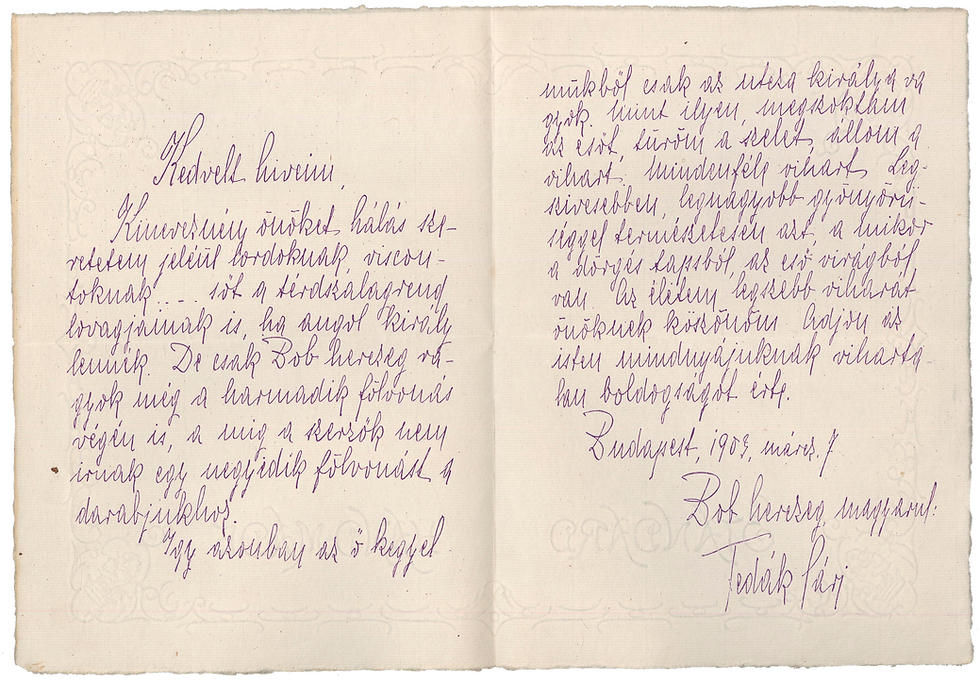 Kedvelt hiveim,
Kinevezném önöket hálás sze-
retetem jeléül lordoknak, viscon-
toknak .... sőt a térdszalagrend
lovagjainak is, ha angol király
lennék. De csak Bob herczeg va-
gyok még a harmadik fölvonás
végén is, a mig a szerzők nem
irnak egy negyedik fölvonást a
darabjukhoz.
Igy azonban az ő kegyel
mükből csak az utcza királya va
gyok. Mint ilyen, megszoktam
az esőt, türöm a szelet, állom a
vihart. Mindenféle vihart. Leg-
szivesebben, legnagyobb gyönyörü-
séggel természetesen azt, a mikor
a dörgés tapsból, az eső virágból
van. Az életem legszebb viharát
önöknek köszönöm. Adjon az
isten mindnyájuknak viharta-
lan boldogságot érte.
Budapest, 1903, márcz. 7.
Bob herczeg magyarul:
Fedák Sári